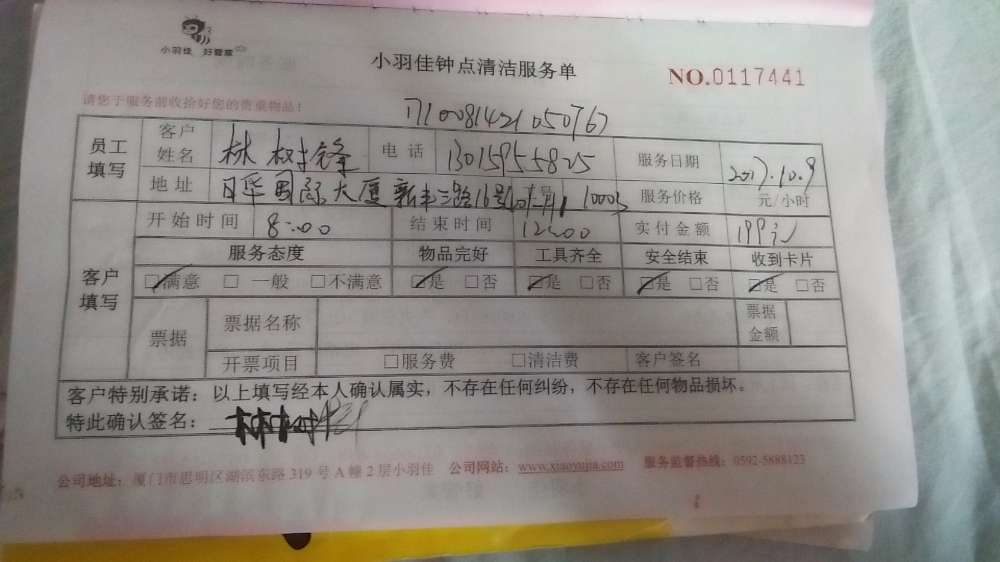 小羽佳 好管家
小羽佳钟点清洁服务单
NO.0117441
请您于服务前收拾好您的贵重物品！
171008142105076
员工填写 客户姓名 林树锋 电话 13015955825 服务日期 2017.10.9
地址 日华国际大厦新丰三路16号 1000 服务价格 元/小时
客户填写 开始时间 8:00 结束时间 12:00 实付金额 199
服务态度 物品完好 工具齐全 安全结束 收到卡片
□满意 □一般 □不满意 □是 □否 □是 □否 □是 □否 □是 □否
票据 票据名称 票据金额
开票项目 □服务费 □清洁费 客户签名
客户特别承诺：以上填写经本人确认属实，不存在任何纠纷，不存在任何物品损坏。
特此确认签名：林树锋
公司地址：厦门市思明区湖滨东路 319 号 A 幢 2 层小羽佳 公司网站：www.xiaoyujia.com 服务监督热线：0592-5888123